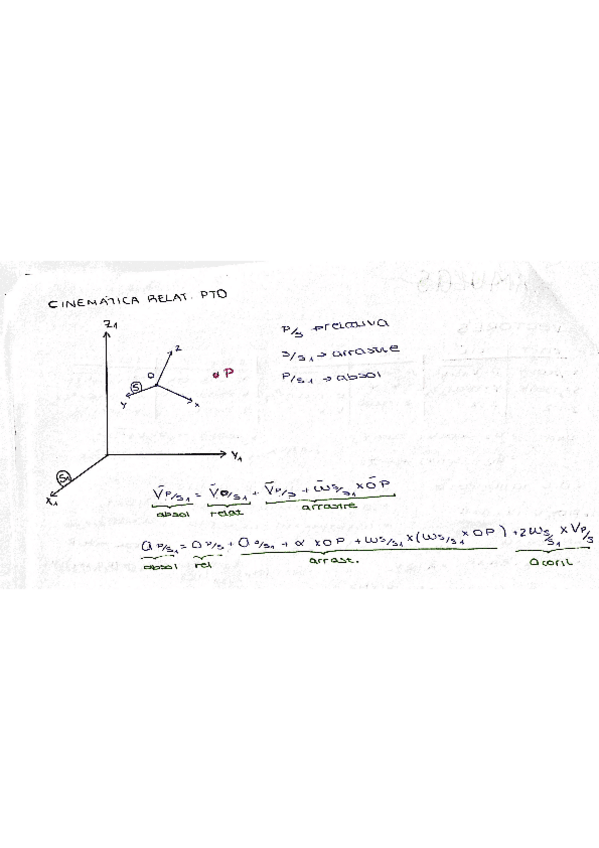 CINEMÁTICA RELAT. PTO
Z1
P/S → relativa
Z
S/S1 → arrastre
O
P
P/S1 → absol
S
Y
X
Y1
S1
X1
V̄P/S1 = V̄O/S1 + V̄P/S + ω̄S/S1 × ŌP
absol relat arrastre
aP/S1 = aP/S + aO/S1 + α × OP + ωS/S1 × (ωS/S1 × OP) + 2ωS/S1 × VP/S
absol rel arrast. acoril.